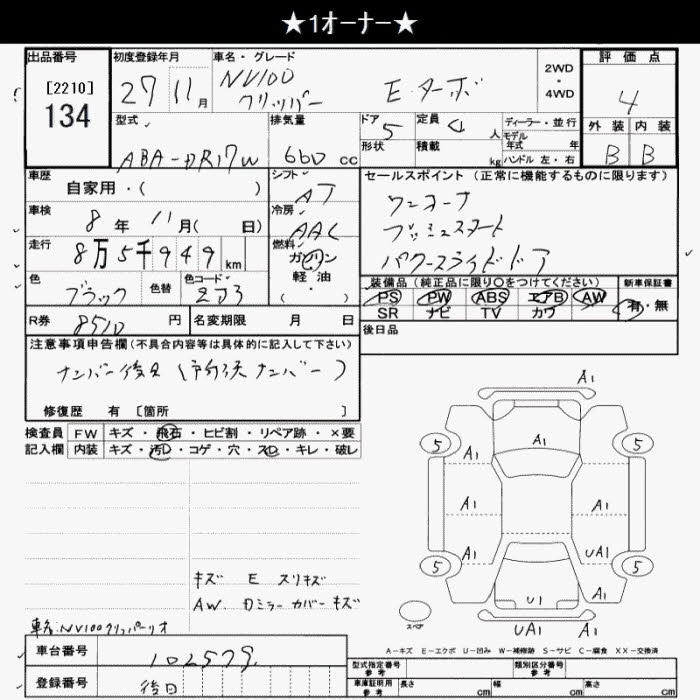 ★1オーナー★
出品番号 初度登録年月 車名・グレード 評価点
[2210] 27 11月 NV100 クリッパー E ターボ 2WD・4WD 4
134
型式 排気量 ドア 定員 ディーラー・並行 外装 内装
ABA-DR17W 660 cc 5 4 人 モデル年式 年 B B
形状 積載 kg ハンドル 左・右
車歴 シフト セールスポイント (正常に機能するものに限ります)
自家用・( ) AT ワンオーナ
車検 冷房 プッシュスタート
8年 11月( 日) AAC パワースライドドア
走行 8万5千949 km 燃料 ガソリン 軽油・( )
色 ブラック 色替 色コード ZJ3
装備品(純正品に限り○をつけてください) 新車保証書
PS PW ABS エアB AW 有・無
SR ナビ TV カワ
R券 8510 円 名変期限 月 日 後日品
注意事項申告欄(不具合内容等は具体的に記入して下さい)
ナンバー後日 (ナンバー)
修復歴 有 [箇所 ]
検査員 FW キズ・飛石・ヒビ割・リペア跡・×要
記入欄 内装 キズ・汚D・コゲ・穴・スD・キレ・破レ
A1
A1
5 5
A1 A1
A1 A1
A1 UA1
5 5
U1
UA1 A1
スペア
キズ E スリキズ
AW. Dミラーカバーキズ
車名:NV100クリッパーリオ
A-キズ E-エクボ U-凹み W-補修跡 S-サビ C-腐食 XX-交換済
車台番号 102579
型式指定番号 参考 類別区分番号 参考
登録番号 後日
車庫証明用 参考 長さ cm 幅 cm 高さ cm